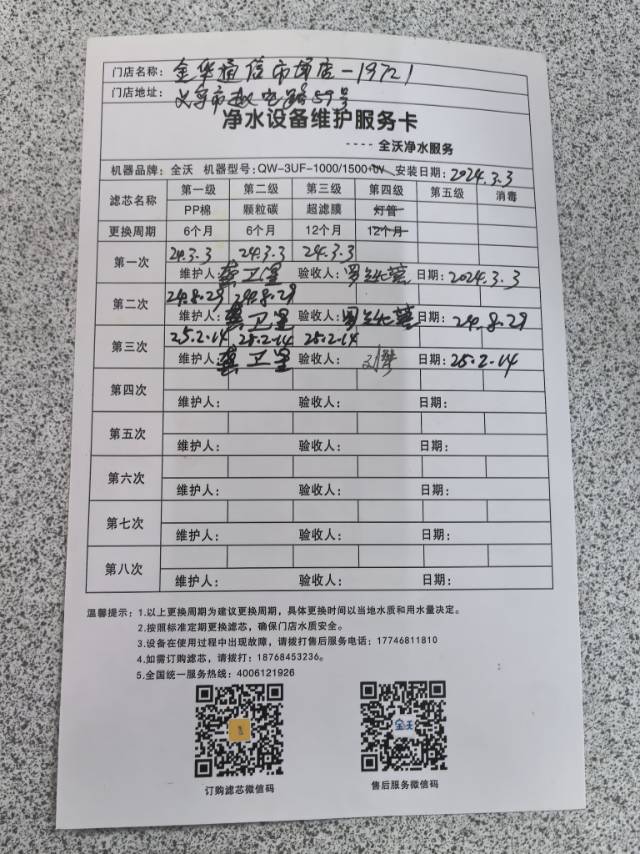 门店名称: 金华 信市场店-19721
门店地址: 义乌市 路59号
净水设备维护服务卡
----全沃净水服务
机器品牌: 全沃 机器型号:QW-3UF-1000/1500-UV 安装日期: 2024.3.3
滤芯名称 第一级 第二级 第三级 第四级 第五级 消毒
PP棉 颗粒碳 超滤膜 灯管
更换周期 6个月 6个月 12个月 12个月
24.3.3 24.3.3 24.3.3
第一次
维护人: 龚卫星 验收人: 日期: 2024.3.3
24.8.29 24.8.29
第二次
维护人: 龚卫星 验收人: 日期: 24.8.29
25.2.14 25.2.14 25.2.14
第三次
维护人: 龚卫星 验收人: 日期: 25.2.14
第四次
维护人: 验收人: 日期:
第五次
维护人: 验收人: 日期:
第六次
维护人: 验收人: 日期:
第七次
维护人: 验收人: 日期:
第八次
维护人: 验收人: 日期:
温馨提示: 1.以上更换周期为建议更换周期，具体更换时间以当地水质和用水量决定。
2.按照标准定期更换滤芯，确保门店水质安全。
3.设备在使用过程中出现故障，请拨打售后服务电话: 17746811810
4.如需订购滤芯，请拨打: 18768453236。
5.全国统一服务热线: 4006121926
全沃
订购滤芯微信码 售后服务微信码